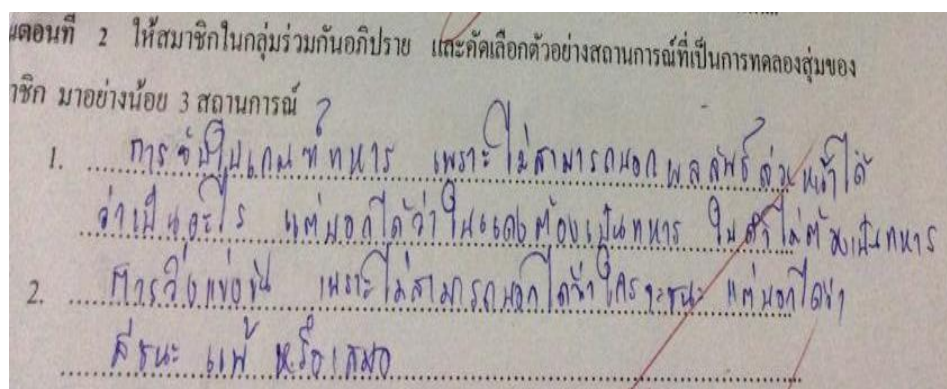 นตอนที่ 2 ให้สมาชิกในกลุ่มร่วมกันอภิปราย และคัดเลือกตัวอย่างสถานการณ์ที่เป็นการทดลองสุ่มของ
าชิก มาอย่างน้อย 3 สถานการณ์
1. การจับใบเกณฑ์ทหาร เพราะไม่สามารถบอกผลลัพธ์ล่วงหน้าได้
ว่าเป็นอะไร แต่บอกได้ว่าใบแดงต้องเป็นทหาร ใบดำไม่ต้องเป็นทหาร
2. การวิ่งแข่งขัน เพราะไม่สามารถบอกได้ว่าใครจะชนะ แต่บอกได้ว่า
มีชนะ แพ้ หรือเสมอ